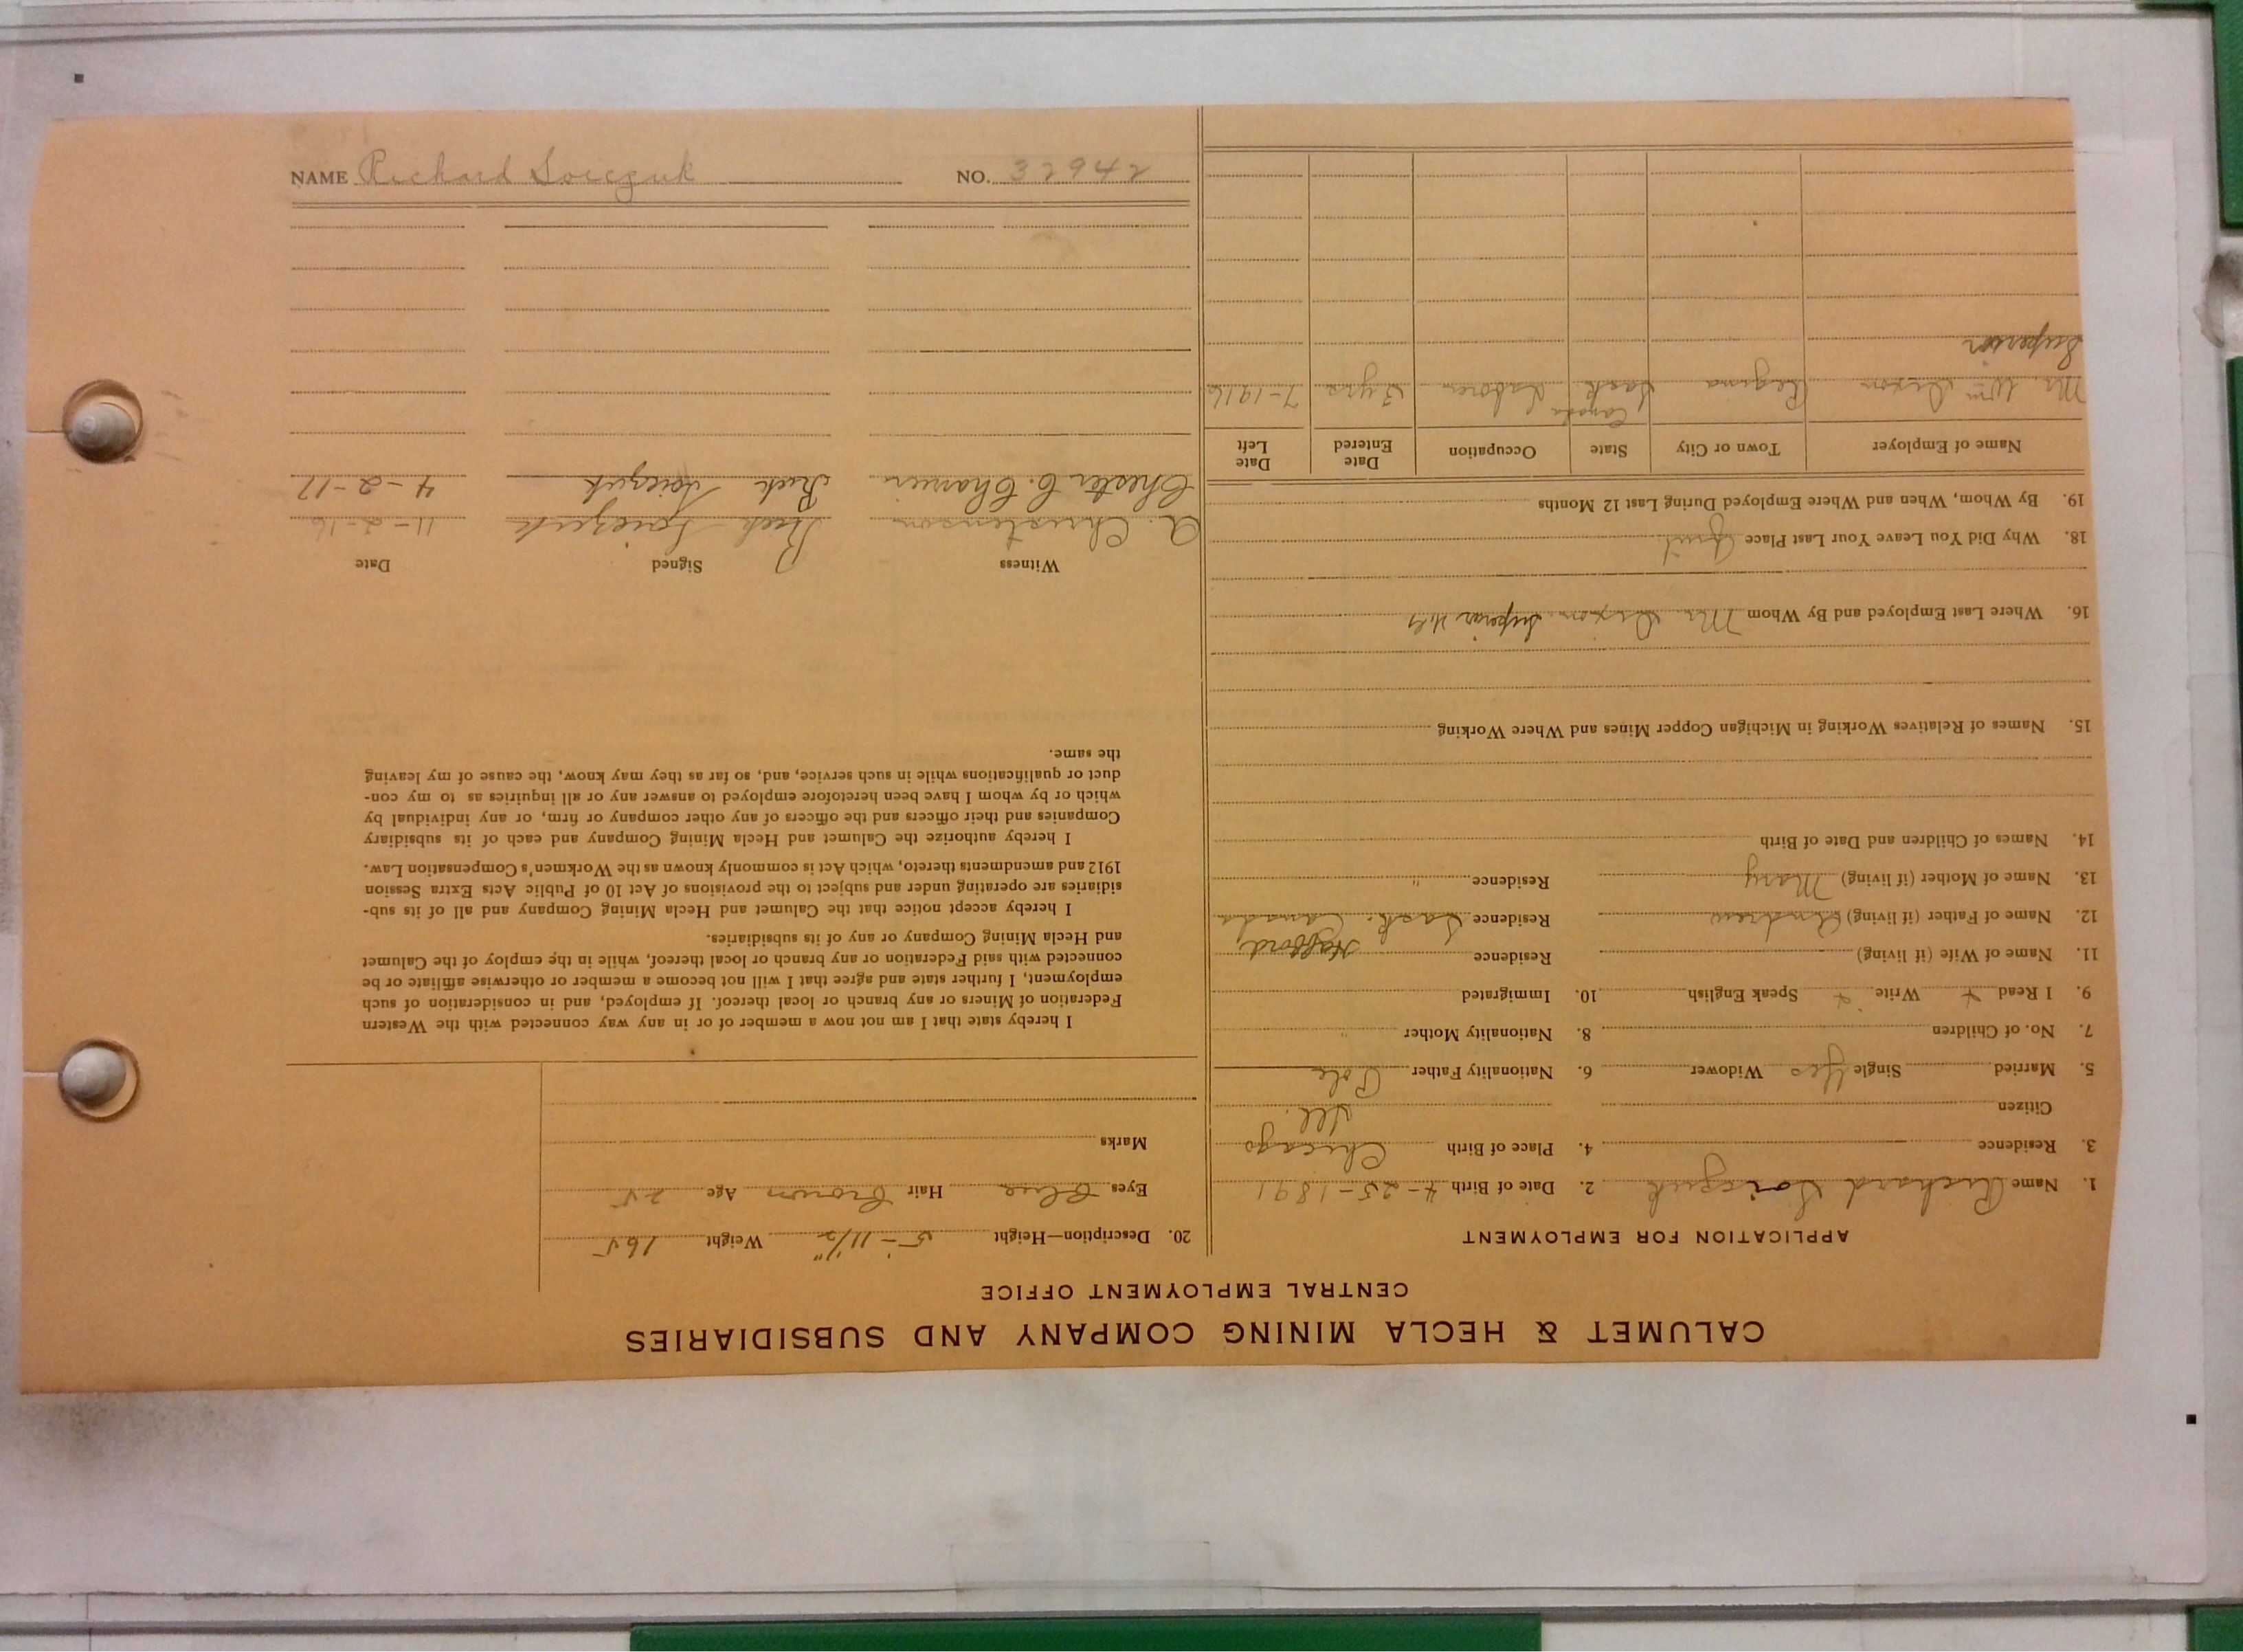 CALUMET & HECLA MINING COMPANY AND SUBSIDIARIES
CENTRAL EMPLOYMENT OFFICE
APPLICATION FOR EMPLOYMENT
1. Name Richard Soiczuk 2. Date of Birth 4-25-1891
3. Residence 4. Place of Birth Chicago
Citizen Ill.
5. Married Single Yes Widower 6. Nationality Father Pole
7. No. of Children 8. Nationality Mother "
9. I Read Write Speak English 10. Immigrated
11. Name of Wife (if living) Residence Hafford,
12. Name of Father (if living) Andrew Residence Sask. Canada
13. Name of Mother (if living) Mary Residence "
14. Names of Children and Date of Birth
15. Names of Relatives Working in Michigan Copper Mines and Where Working
16. Where Last Employed and By Whom Mr. Dixon. Superior
18. Why Did You Leave Your Last Place Quit
19. By Whom, When and Where Employed During Last 12 Months
Name of Employer Town or City State Occupation Date Entered Date Left
Canada
Mr. Wm Dixon Regina Sask Laborer 3 yrs 7-1916
Superior
20. Description—Height 5'-11 1/2" Weight 165
Eyes Blue Hair Brown Age 25
Marks
I hereby state that I am not now a member of or in any way connected with the Western
Federation of Miners or any branch or local thereof. If employed, and in consideration of such
employment, I further state and agree that I will not become a member or otherwise affiliate or be
connected with said Federation or any branch or local thereof, while in the employ of the Calumet
and Hecla Mining Company or any of its subsidiaries.
I hereby accept notice that the Calumet and Hecla Mining Company and all of its sub-
sidiaries are operating under and subject to the provisions of Act 10 of Public Acts Extra Session
1912 and amendments thereto, which Act is commonly known as the Workmen's Compensation Law.
I hereby authorize the Calumet and Hecla Mining Company and each of its subsidiary
Companies and their officers and the officers of any other company or firm, or any individual by
which or by whom I have been heretofore employed to answer any or all inquiries as to my con-
duct or qualifications while in such service, and, so far as they may know, the cause of my leaving
the same.
Witness Signed Date
A. Christenson Rich Soiczuk 11-2-16
Chester C. Rich Soiczuk 4-2-17
NAME Richard Soiczuk NO. 32942